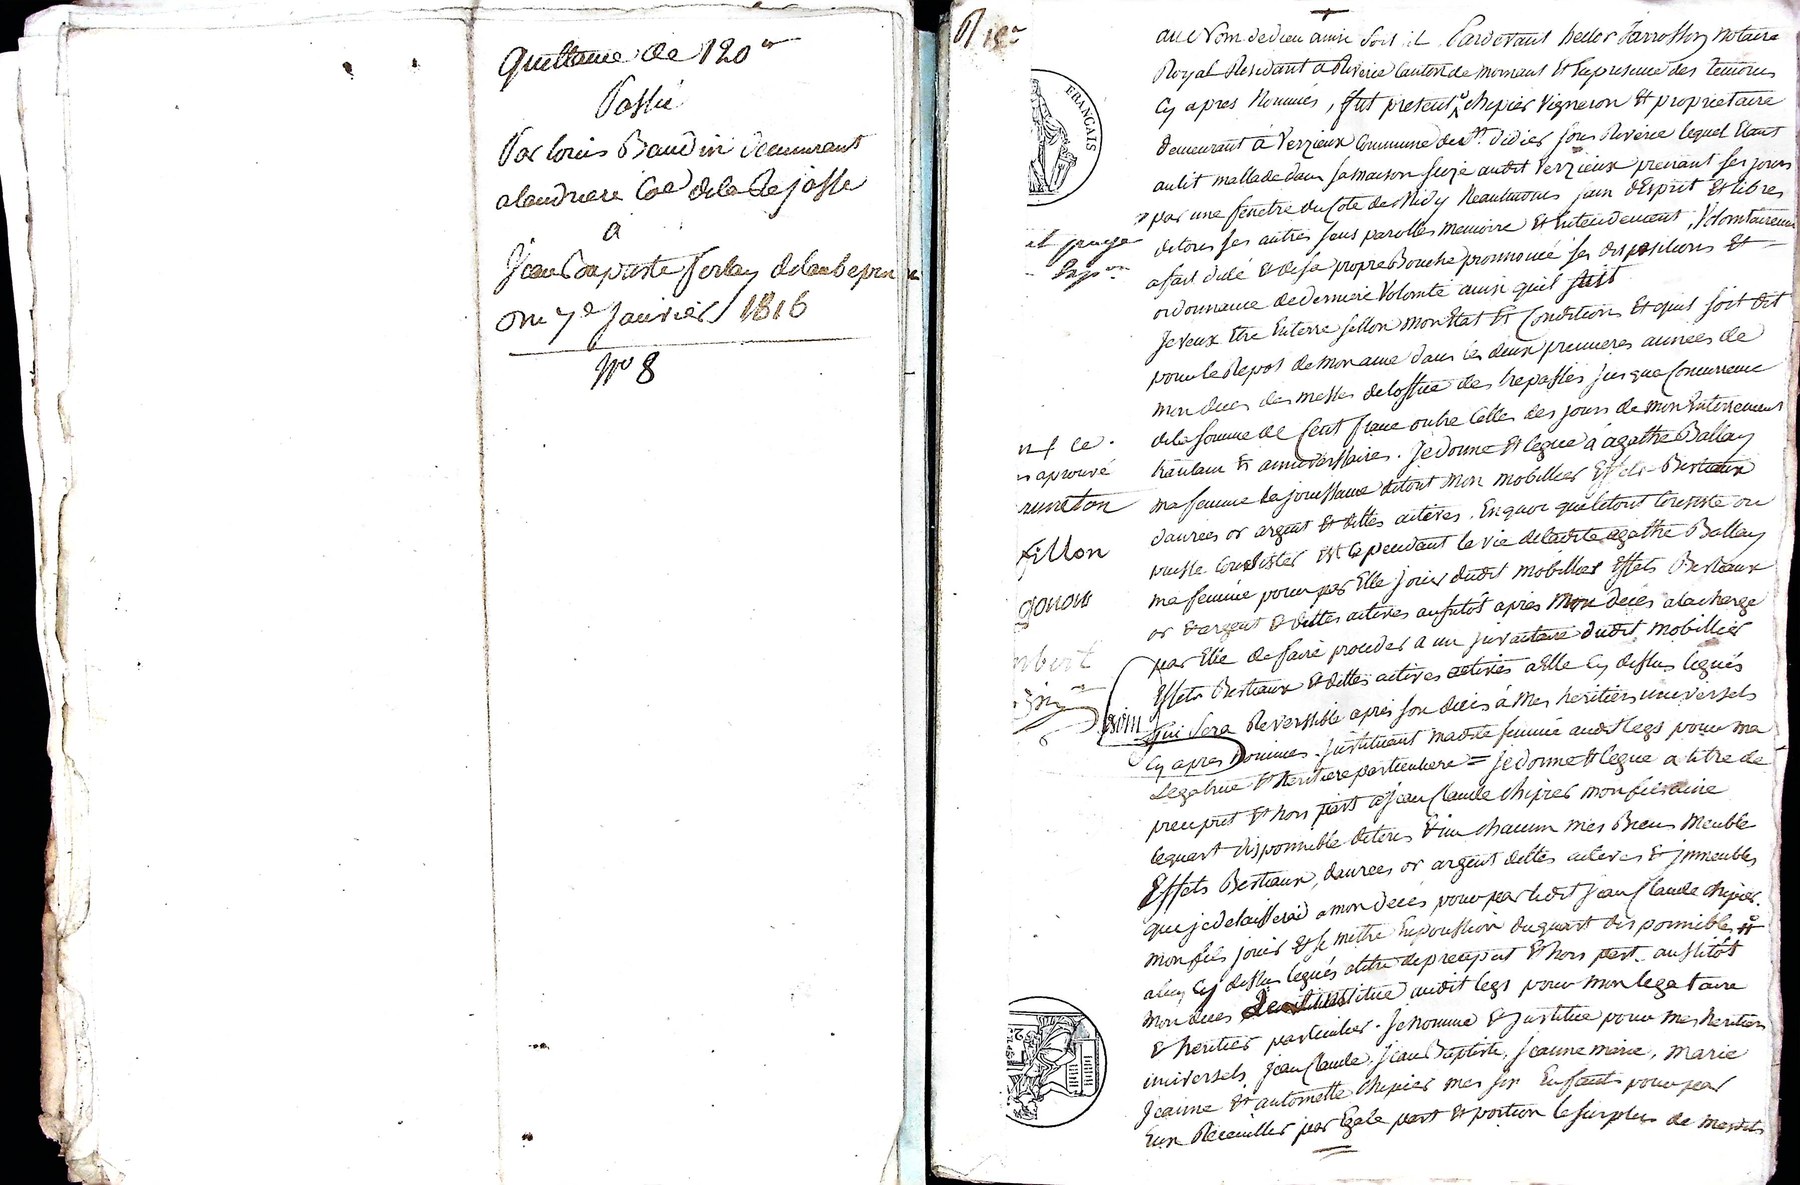 Quittance de 120 ₶
Passé
Par louis Baudin demeurant
alandriere Coe dela Rejasse
a
Jean Baptiste ferlay delaubepin
Du 7e Janvier 1816
No 8
R 15
FRANCAIS
au Nom de dieu ainsi soit il Pardevant hector Jarrosson Notaire
Royal Residant a Riverie Canton de mornant Et Enpresence des temoins
Cy apres Nommés, fut present chipier Vigneron Et proprietaire
demeurant á Verzieux Commune de St. didier sous Riverie lequel Etant
au lit mallade dans sa maison size audit Verzieux prenant ses jours
par une fenetre du Coté de Midy Neaulmoins sain d'Esprit Et libres
de tous ses autres sens parolles memoire Et Entendement, Volontairement
a fait dicté Et de sa propre Bouche prononcé ses dispositions Et
ordonnance de derniere Volonté ainsi quil suit
Je veux Etre Enterré sellon mon Etat Et Condition Et quil soit dit
pour le Repos de mon ame dans les deux premieres années de
mon deces des messes de loffice des trepassés jusque Concurrence
dela somme de Cent franc outre Celles des jours de mon Enterrement
trantain Et anniverssaires. Je donne Et legue à agathe Ballay
ma femme la jouissance de tout mon mobillier Effets Bestiaux
danrees or argent Et dettes actives. En quoi que le tout Consiste ou
puisse Consister Et Ce pendant la vie deladite agathe Ballay
ma femme pour par Elle jouir dudit mobillier Effets Bestiaux
or Et argent Et dettes actives aussitôt apres Mon décès ala charge
par Elle de faire proceder a un jnvantaire dudit mobillier
Effets Bestiaux Et dettes actives actives a Elle Cy dessus legués
qui sera Reverssible après son décès à mes heritiers universels
Cy apres Nommés. Jnstituant madite femme audit legs pour ma
Legatrice Et heritiere particuliere = Je donne Et legue a titre de
preciput Et hors part a Jean Claude chipier mon fils aine
le quart disponnible de tous Et un chacun mes Biens Meuble
Effets Bestiaux, danrees or argent dettes actives Et jmmeubles
que je delaisserai a mon décès pour par ledit Jean Claude chipier
mon fils jouir Et se mettre En possession du quart disponnible
a luy Cy dessus legués atitre de preciput Et hors part aussitôt
mon deces institue audit legs pour mon legataire
Et heritier particulier. Je Nomme Et Jnstitue pour mes heritiers
universels Jean Claude, Jean Baptiste, Jeanne marie, Marie
Jeanne Et antoinette chipier mes six Enfants pour par
Eux Recueillir par Egale part Et portion le surplus de mesdits